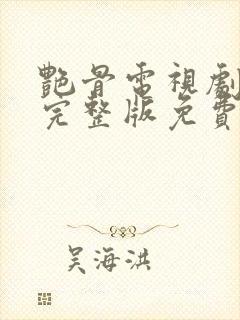 艷骨電視劇
完整版免費
吳海洪